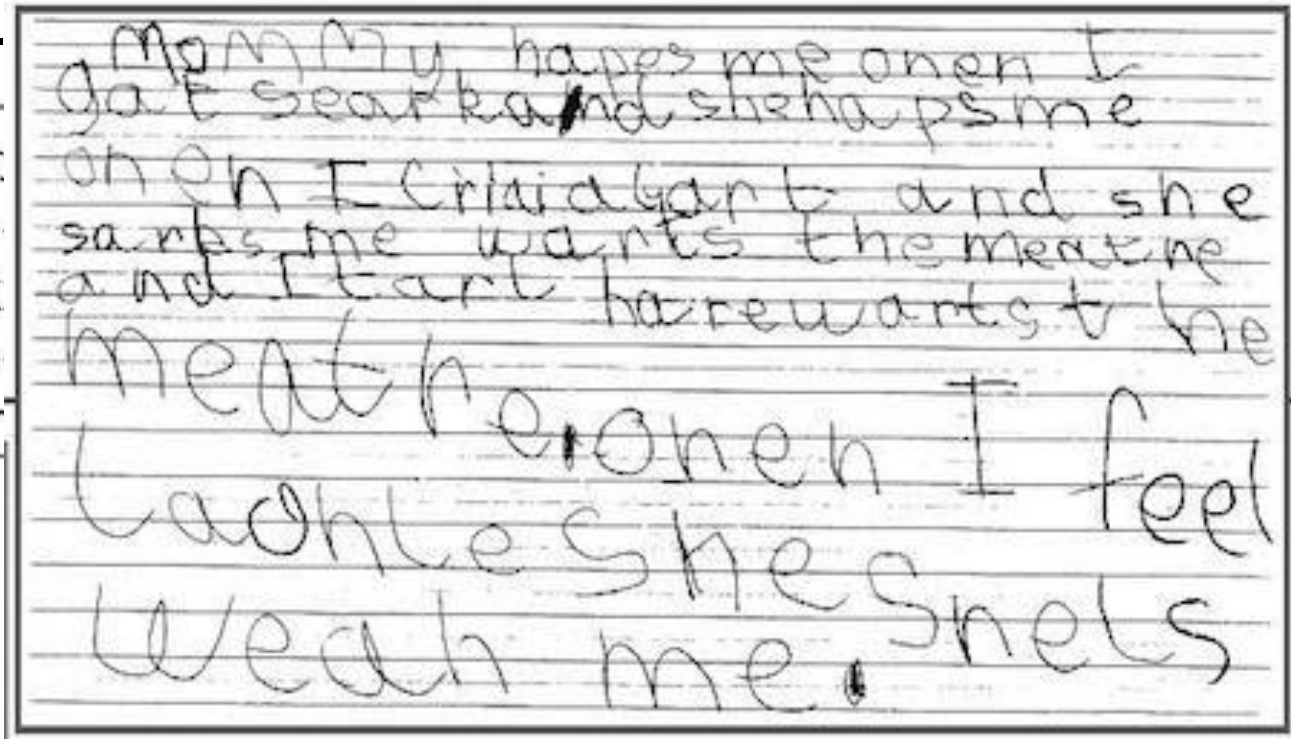 Mommy hapes me onen I
gat seark and shehapsme
onen I Criaidgart and she
sarks me warts thementhe
and I tart harewartst he
menthe. onen I feel
Laohle she snels
weah me.